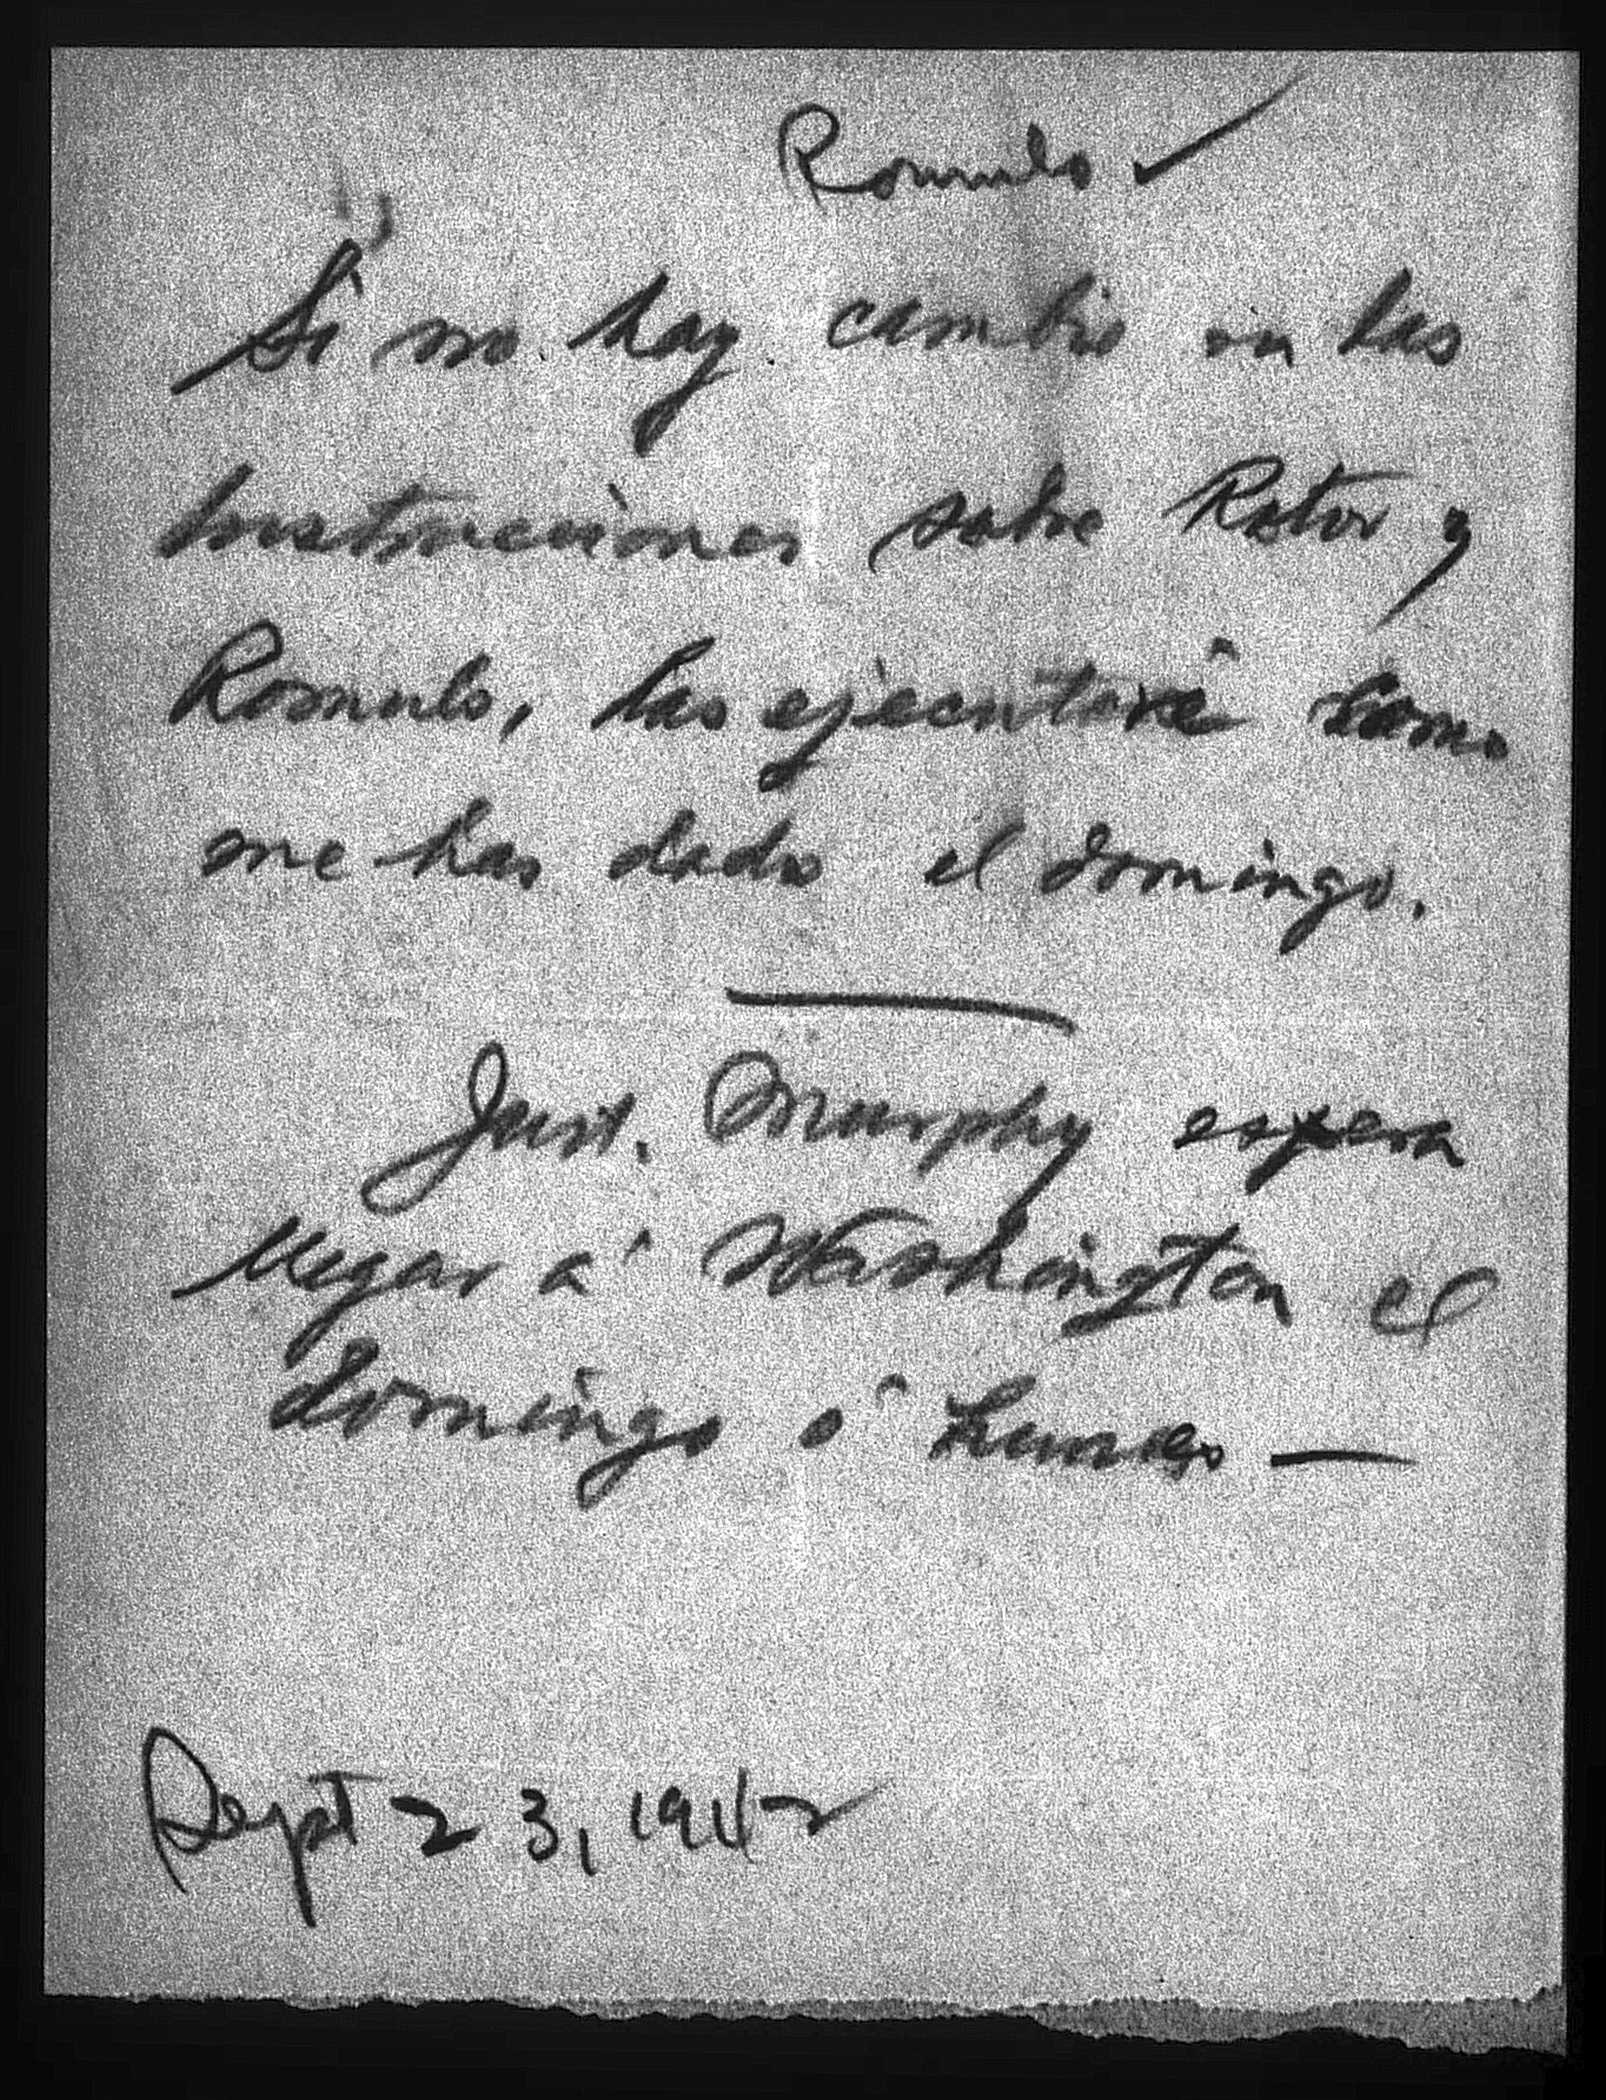 Romulo ✓
Si no hay cambio en las
instrucciones sobre Rotor y
Romulo, las ejecutaré como
me has dado el domingo.
Just. Murphy espera
llegar á Washington el
domingo ó lunes —
Sept 23, 1942